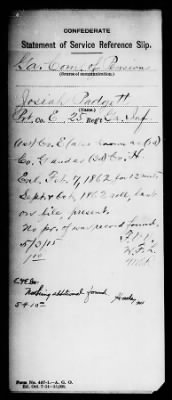 CONFEDERATE
Statement of Service Reference Slip.
Ga. Com. of Pensions
(Source of communication.)
Josiah Padgett
(Name.)
Pvt. Co. E, 25 Regt. Ga. Inf.
(1st) Co. E (also known as (2d)
Co. G and as (3d) Co. H.
Enl. Feb. 7, 1862 for 12 mos.
Sept & Oct, 1862 roll, last
on file, present.
No pr. of war record found.
5/3/15
nothing additional found
5-4-15
Form No. 467-1.—A. G. O.
Ed. Oct. 7-14—10,000.